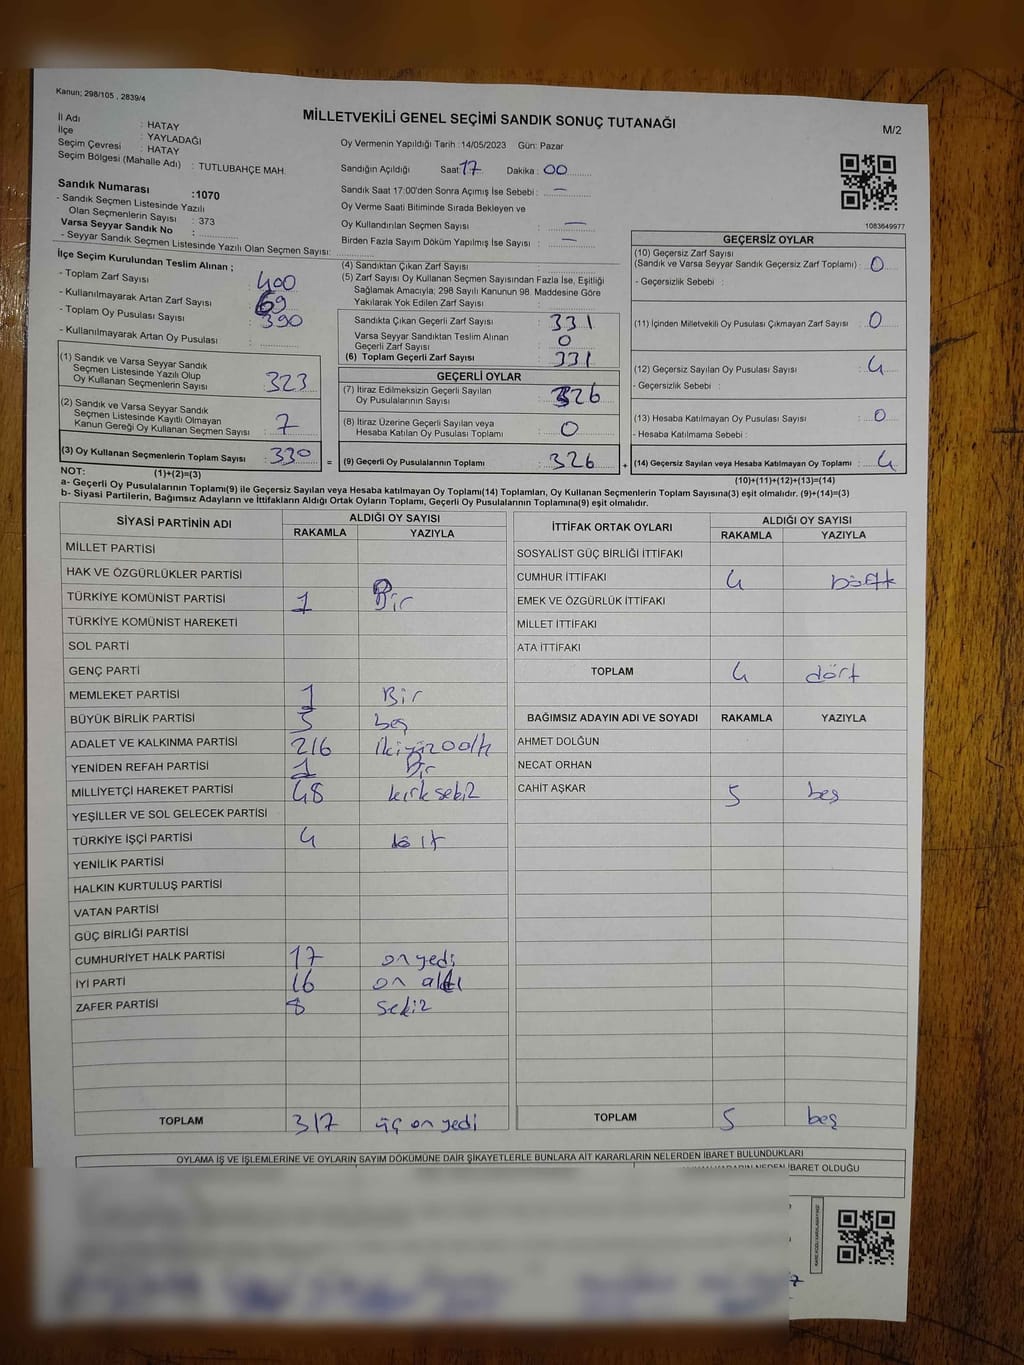 Kanun; 298/105 , 2839/4
MİLLETVEKİLİ GENEL SEÇİMİ SANDIK SONUÇ TUTANAĞI
M/2
İl Adı : HATAY
İlçe : YAYLADAĞI
Seçim Çevresi : HATAY
Seçim Bölgesi (Mahalle Adı) : TUTLUBAHÇE MAH.
Sandık Numarası :1070
- Sandık Seçmen Listesinde Yazılı
Olan Seçmenlerin Sayısı : 373
Varsa Seyyar Sandık No :
- Seyyar Sandık Seçmen Listesinde Yazılı Olan Seçmen Sayısı:
Oy Vermenin Yapıldığı Tarih : 14/05/2023 Gün: Pazar
Sandığın Açıldığı Saat: 17 Dakika : 00
Sandık Saat 17:00'den Sonra Açımış İse Sebebi : —
Oy Verme Saati Bitiminde Sırada Bekleyen ve
Oy Kullandırılan Seçmen Sayısı : —
Birden Fazla Sayım Döküm Yapılmış İse Sayısı : —
1083649977
İlçe Seçim Kurulundan Teslim Alınan ;
- Toplam Zarf Sayısı : 400
- Kullanılmayarak Artan Zarf Sayısı : 69
- Toplam Oy Pusulası Sayısı : 390
- Kullanılmayarak Artan Oy Pusulası :
(1) Sandık ve Varsa Seyyar Sandık
Seçmen Listesinde Yazılı Olup
Oy Kullanan Seçmenlerin Sayısı : 323
(2) Sandık ve Varsa Seyyar Sandık
Seçmen Listesinde Kayıtlı Olmayan
Kanun Gereği Oy Kullanan Seçmen Sayısı : 7
(3) Oy Kullanan Seçmenlerin Toplam Sayısı : 330
(1)+(2)=(3)
(4) Sandıktan Çıkan Zarf Sayısı :
(5) Zarf Sayısı Oy Kullanan Seçmen Sayısından Fazla İse, Eşitliği
Sağlamak Amacıyla; 298 Sayılı Kanunun 98. Maddesine Göre
Yakılarak Yok Edilen Zarf Sayısı :
Sandıkta Çıkan Geçerli Zarf Sayısı : 331
Varsa Seyyar Sandıktan Teslim Alınan
Geçerli Zarf Sayısı : 0
(6) Toplam Geçerli Zarf Sayısı : 331
GEÇERLİ OYLAR
(7) İtiraz Edilmeksizin Geçerli Sayılan
Oy Pusulalarının Sayısı : 326
(8) İtiraz Üzerine Geçerli Sayılan veya
Hesaba Katılan Oy Pusulası Toplamı : 0
= (9) Geçerli Oy Pusulalarının Toplamı : 326 +
GEÇERSİZ OYLAR
(10) Geçersiz Zarf Sayısı
(Sandık ve Varsa Seyyar Sandık Geçersiz Zarf Toplamı) : 0
- Geçersizlik Sebebi :
(11) İçinden Milletvekili Oy Pusulası Çıkmayan Zarf Sayısı : 0
(12) Geçersiz Sayılan Oy Pusulası Sayısı : 4
- Geçersizlik Sebebi :
(13) Hesaba Katılmayan Oy Pusulası Sayısı : 0
- Hesaba Katılmama Sebebi :
(14) Geçersiz Sayılan veya Hesaba Katılmayan Oy Toplamı : 4
(10)+(11)+(12)+(13)=(14)
NOT:
a- Geçerli Oy Pusulalarının Toplamı(9) ile Geçersiz Sayılan veya Hesaba katılmayan Oy Toplamı(14) Toplamları, Oy Kullanan Seçmenlerin Toplam Sayısına(3) eşit olmalıdır. (9)+(14)=(3)
b- Siyasi Partilerin, Bağımsız Adayların ve İttifakların Aldığı Ortak Oyların Toplamı, Geçerli Oy Pusulalarının Toplamına(9) eşit olmalıdır.
SİYASİ PARTİNİN ADI ALDIĞI OY SAYISI
RAKAMLA YAZIYLA
MİLLET PARTİSİ
HAK VE ÖZGÜRLÜKLER PARTİSİ
TÜRKİYE KOMÜNİST PARTİSİ 1 Bir
TÜRKİYE KOMÜNİST HAREKETİ
SOL PARTİ
GENÇ PARTİ
MEMLEKET PARTİSİ 1 Bir
BÜYÜK BİRLİK PARTİSİ 5 beş
ADALET VE KALKINMA PARTİSİ 216 ikiyüz
YENİDEN REFAH PARTİSİ 1 Bir
MİLLİYETÇİ HAREKET PARTİSİ 48 kırk sekiz
YEŞİLLER VE SOL GELECEK PARTİSİ
TÜRKİYE İŞÇİ PARTİSİ 4
YENİLİK PARTİSİ
HALKIN KURTULUŞ PARTİSİ
VATAN PARTİSİ
GÜÇ BİRLİĞİ PARTİSİ
CUMHURİYET HALK PARTİSİ 17 on yedi
İYİ PARTİ 16 on altı
ZAFER PARTİSİ 8 sekiz
TOPLAM 317 üç on yedi
İTTİFAK ORTAK OYLARI ALDIĞI OY SAYISI
RAKAMLA YAZIYLA
SOSYALİST GÜÇ BİRLİĞİ İTTİFAKI
CUMHUR İTTİFAKI 4
EMEK VE ÖZGÜRLÜK İTTİFAKI
MİLLET İTTİFAKI
ATA İTTİFAKI
TOPLAM 4 dört
BAĞIMSIZ ADAYIN ADI VE SOYADI RAKAMLA YAZIYLA
AHMET DOLĞUN
NECAT ORHAN
CAHİT AŞKAR 5 beş
TOPLAM 5 beş
OYLAMA İŞ VE İŞLEMLERİNE VE OYLARIN SAYIM DÖKÜMÜNE DAİR ŞİKAYETLERLE BUNLARA AİT KARARLARIN NELERDEN İBARET BULUNDUKLARI
İBARET OLDUĞU